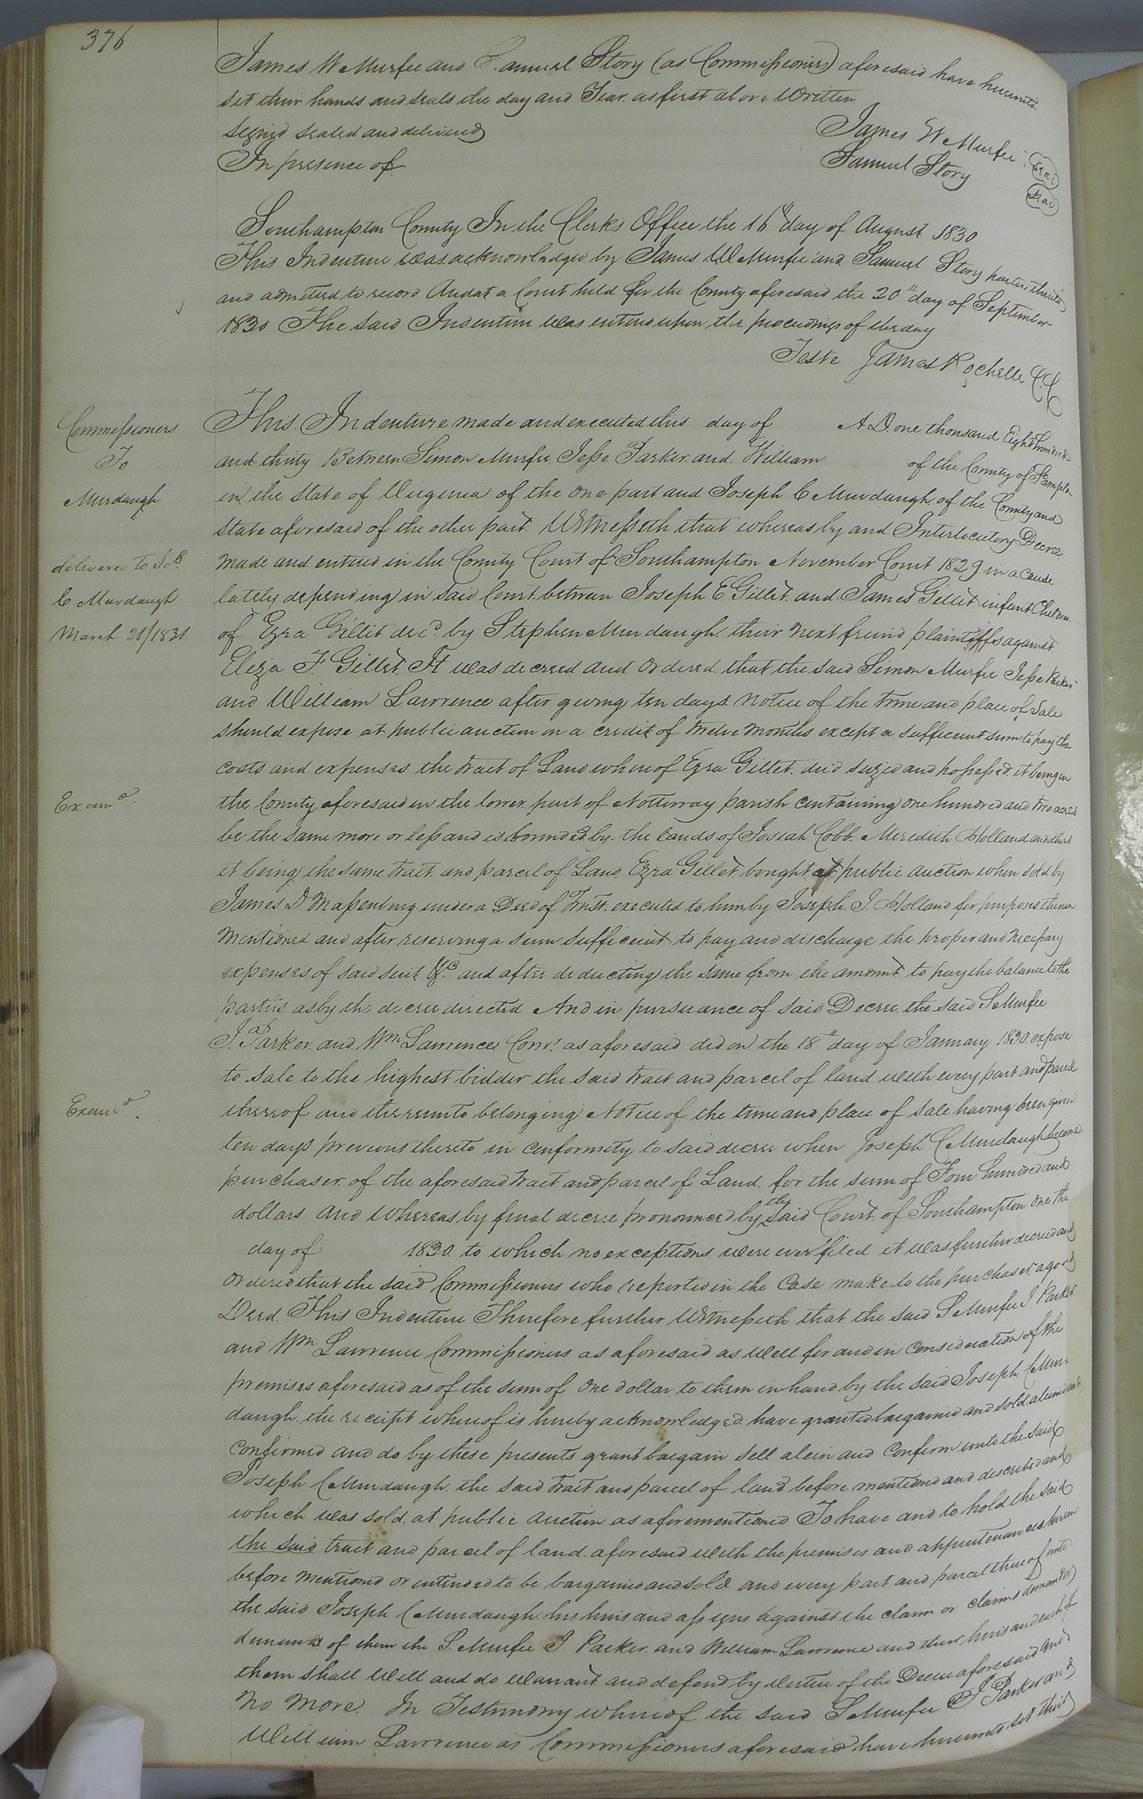 376
James W Murfee and Samuel Story (as Commissioners) aforesaid have hereunto
set their hands and seals the day and Year as first above Written
Signed sealed and delivered
In presence of
James W Murfee Seal
Samuel Story Seal
Southampton County In the Clerks Office the 16th day of August 1830
This Indenture was acknowledged by James W Murfee and Samuel Story parties thereto
and admitted to record And at a Court held for the County aforesaid the 20th day of September
1830 The said Indenture was entered upon the proceedings of the day
Teste James Rochelle C.C
Commissioners
To
Murdaugh
delivered to Jos.
C Murdaugh
March 21/1831
This Indenture made and executed this day of A D. one thousand Eight hundred
and thirty Between Simon Murfee Jesse Parker and William of the County of Sampton
in the State of Virginia of the one part and Joseph C Murdaugh of the County and
State aforesaid of the other part. Witnesseth that whereas by and Interlocutory Decree
made and entered in the County Court of Southampton November Court 1829 in a cause
lately depending in said Court between Joseph E Gillet and James Gillet infant Children
of Ezra Gillet decd. by Stephen Murdaugh their next freind plaintiffs against
Eliza F Gillet It was decreed and ordered that the said Simon Murfee Jesse Parker
and William Lawrence after giving ten days notice of the time and place of Sale
should expose at public auction on a credit of twelve months except a sufficient sum to pay the
costs and expenses the tract of Land whereof Ezra Gillet died seized and possessed it being in
Examd.
the County aforesaid in the lower part of Nottoway parish containing one hundred and two acres
be the same more or less and is bounded by the lands of Josiah Cobb Meredith Holland and others
it being the same tract and parcel of Land Ezra Gillet bought at public auction when sold by
James D Massenburg under a Deed of Trust executed to him by Joseph J. Holland for purposes therein
mentioned and after reserving a sum sufficient to pay and discharge the proper and necessary
expenses of said suit &c. and after deducting the same from the amount to pay the balance to the
parties as by the decree directed And in pursuance of said Decree the said S Murfee
J. Parker and Wm Lawrence Comrs. as aforesaid did on the 18th day of January 1830 expose
to sale to the highest bidder the said tract and parcel of land with every part and parcel
Examd.
thereof and thereunto belonging Notice of the time and place of sale having been given
ten days previous thereto in conformity to said decree when Joseph C Murdaugh became
purchaser of the aforesaid tract and parcel of Land for the sum of Four hundred and
dollars and Whereas by final decree pronounced by the said Court of Southampton on the
day of 1830 to which no exceptions were ever filed it was further decreed and
ordered that the said Commissioners who reported in the Case make to the purchaser a good
Deed This Indenture Therefore further Witnesseth that the said S Murfee J Parker
and Wm Lawrence Commissioners as aforesaid as well for and in consideration of the
premises aforesaid as of the sum of one dollar to them in hand by the said Joseph C Mur-
daugh the receipt whereof is hereby acknowledged have granted bargained and sold aliened and
confirmed and do by these presents grant bargain sell alein and Confirm unto the said
Joseph C Murdaugh the said tract and parcel of land before mentioned and described and
which was sold at public auction as aforementioned To have and to hold the said
the said tract and parcel of land aforesaid with the premises and appurtenances herein
before mentioned or intended to be bargained and sold and every part and parcel thereof unto
the said Joseph C Murdaugh his heirs and assigns against the claim or claims demand or
demands of them the S. Murfee J Parker and William Lawrence and their heirs and each of
them shall Well and do Warrant and defend by virtue of the Decree aforesaid and
no more In Testimony whereof the said S Murfee J Parker and
William Lawrence as Commissioners aforesaid have hereunto set their